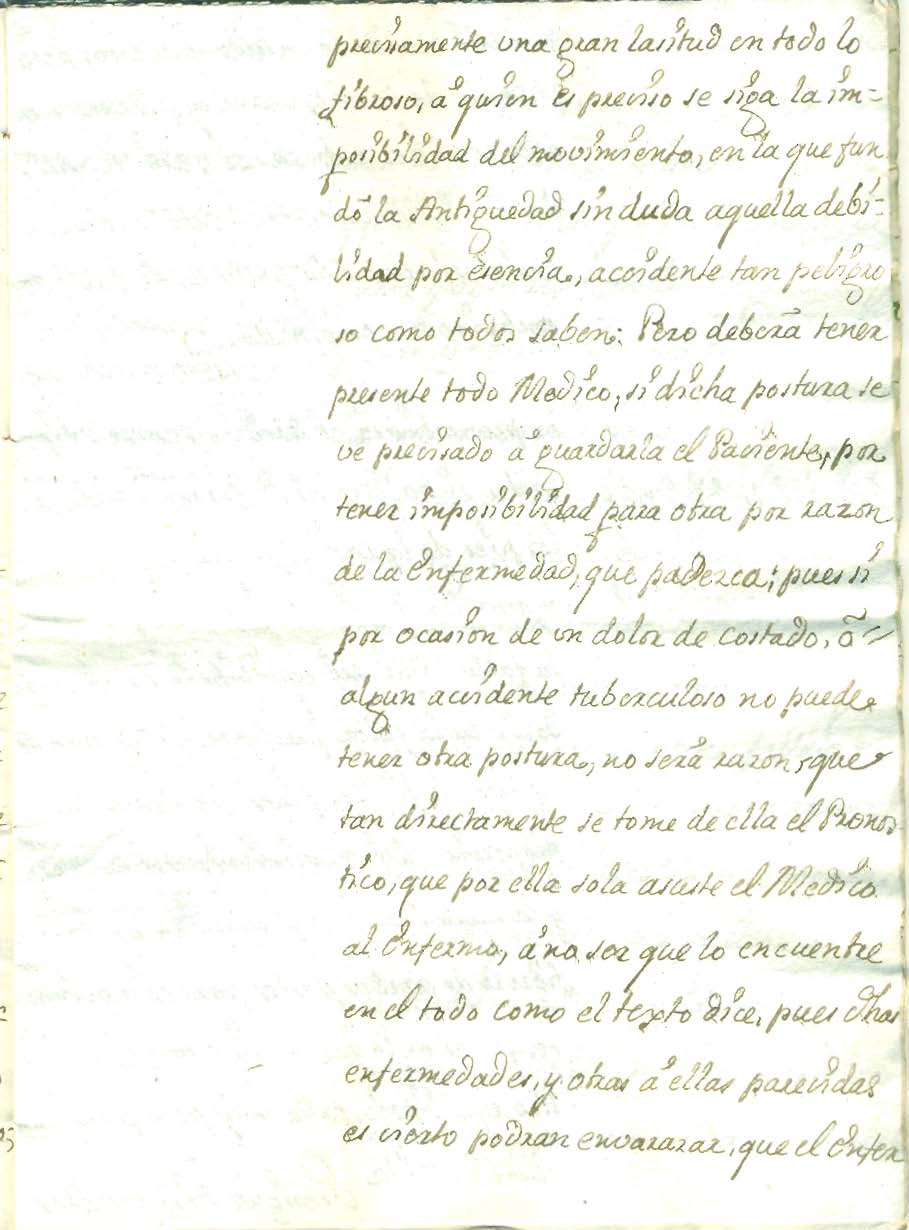 precisamente una gran lasitud en todo lo
fibroso, â quien es preciso se siga la im=
posibilidad del movimiento, en la que fun
dô la Antiguedad sin duda aquella debi=
lidad por esencia, accidente tan peligro
so como todos saben: Pero deberâ tener
presente todo Medico, si dicha postura se
ve precisado â guardarla el Paciente, por
tener imposibilidad para otra por razon
de la Enfermedad, que padezca; pues si
por ocasion de un dolor de costado, ô=
algun accidente tuberculoso no puede
tener otra postura, no serâ razon, que
tan directamente se tome de ella el Pronos
tico, que por ella sola asuste el Medico
al Enfermo, â no ser que lo encuentre
en el todo como el texto dice, pues dhas
enfermedades, y otras â ellas parecidas
es cierto podran envarazar, que el Enfer